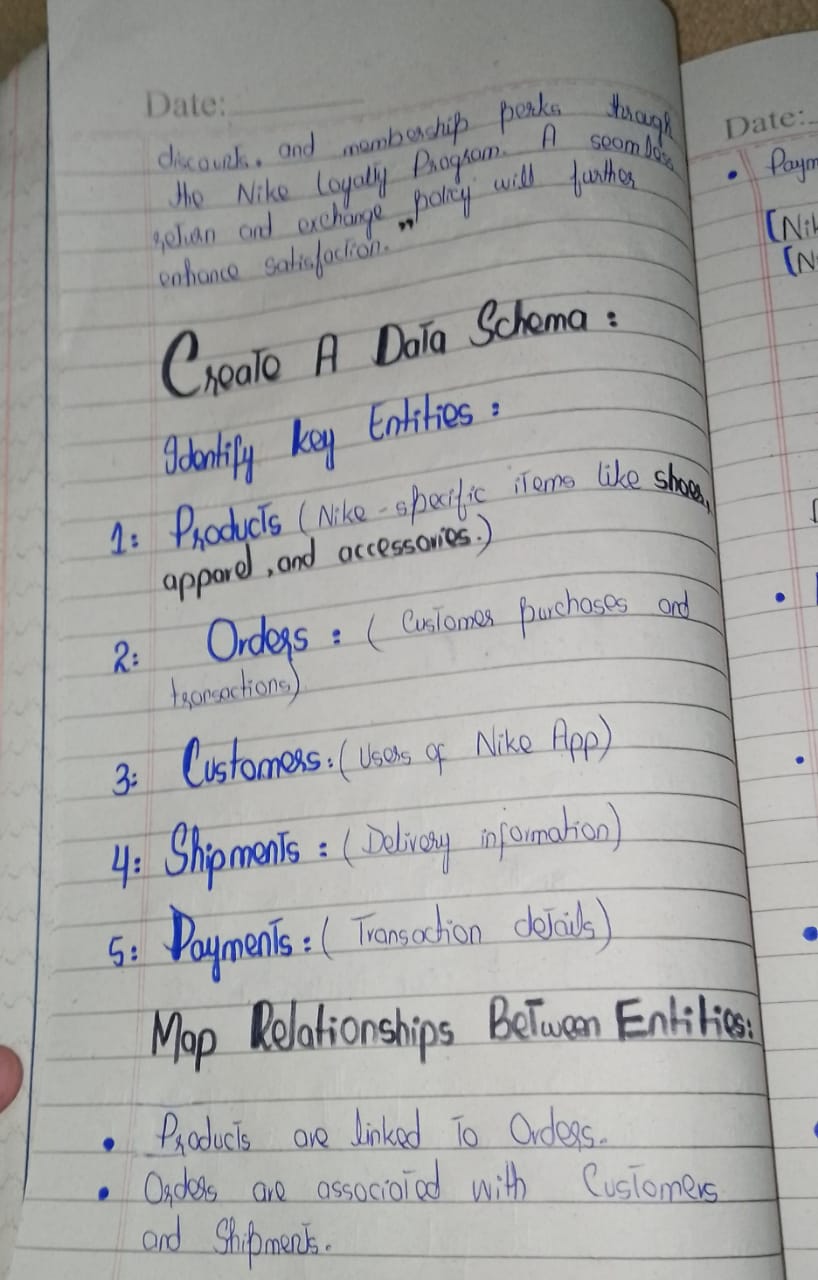 Date:
discounts, and membership perks through
the Nike Loyalty Program. A seamless
return and exchange policy will further
enhance satisfaction."
Create A Data Schema:
Identify key Entities:
1: Products (Nike-specific items like shoes,
apparel, and accessories.)
2: Orders: (Customer purchases and
transactions)
3: Customers: (Users of Nike App)
4: Shipments: (Delivery information)
5: Payments: (Transaction details)
Map Relationships Between Entities:
• Products are linked To Orders.
• Orders are associated with Customers
and Shipments.
Date:
• Paym
[Nik
[N